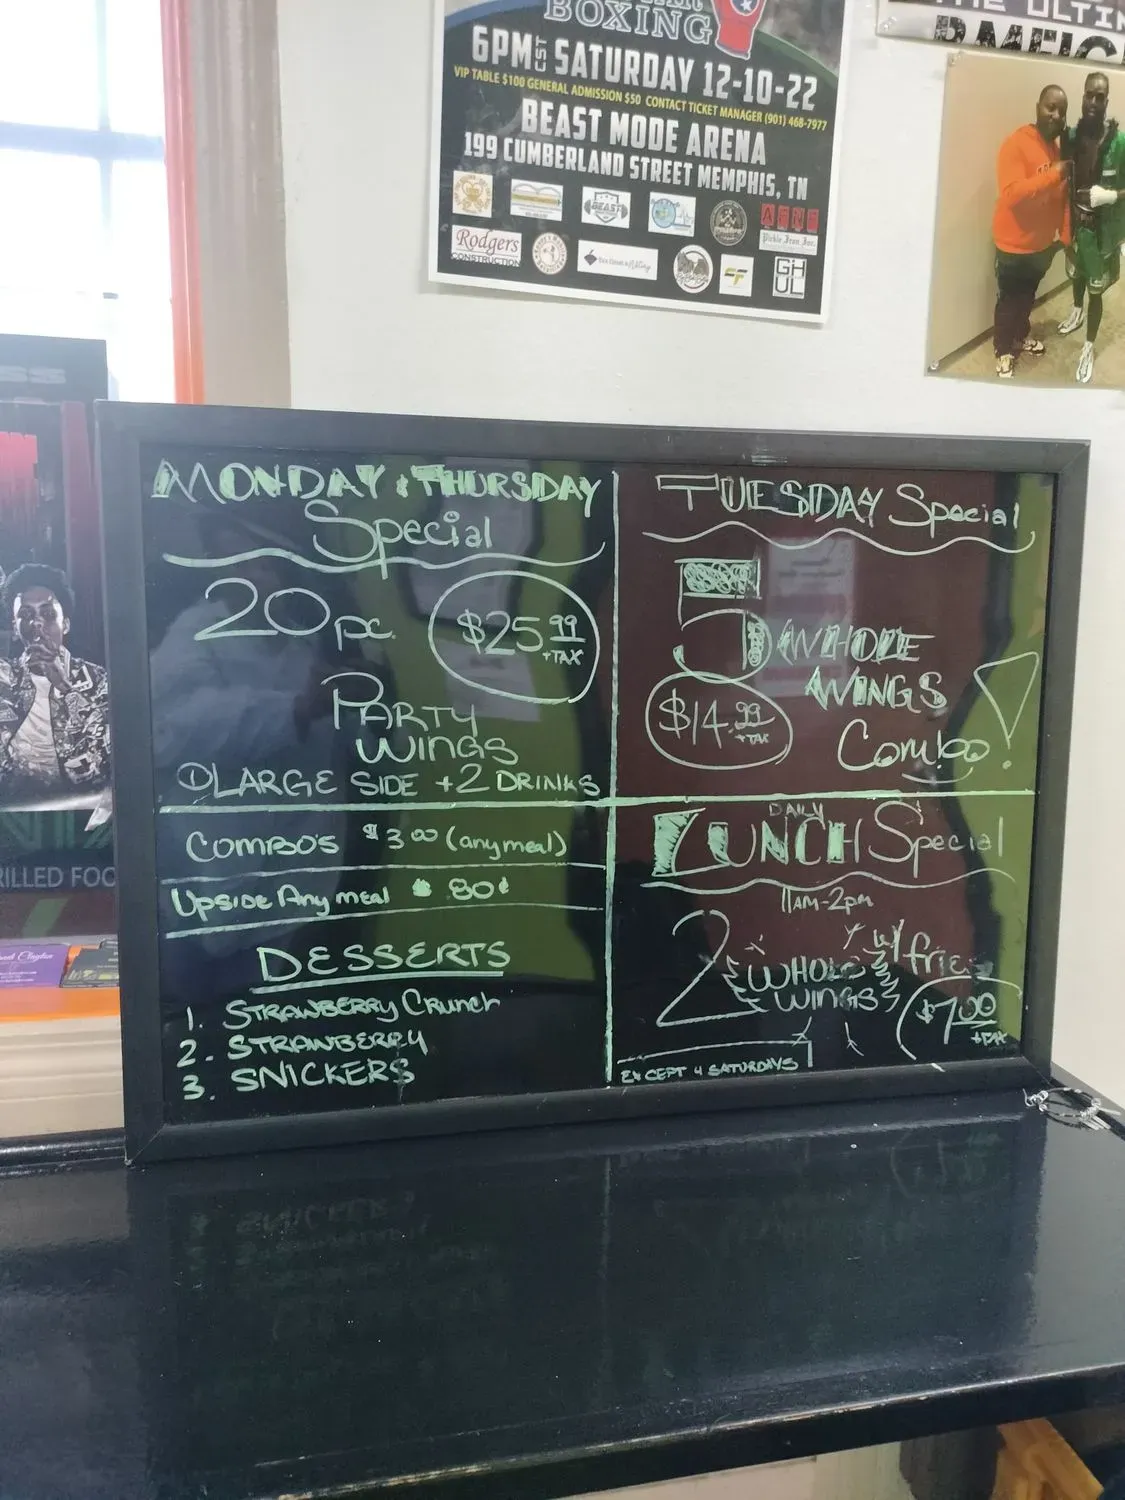 BOXING
6PM CST SATURDAY 12-10-22
VIP TABLE $100 GENERAL ADMISSION $50 CONTACT TICKET MANAGER (901) 468-7977
BEAST MODE ARENA
199 CUMBERLAND STREET MEMPHIS, TN
BEAST
Rodgers
CONSTRUCTION
Pickle Iron Inc.
GH
UL
THE ULTIM
MONDAY & THURSDAY
Special
20 pc. $25.99
+TAX
PARTY
WINGS
1 LARGE SIDE + 2 DRINKS
COMBO'S $3.00 (any meal)
Upside Any meal 80¢
DESSERTS
1. STRAWBERRY Crunch
2. STRAWBERRY
3. SNICKERS
TUESDAY Special
5 WHOLE
WINGS
$14.99
+TAX
Combo!
DAILY
LUNCH Special
11AM-2pm
2 WHOLE
WINGS
w/ fries
$7.00
+TAX
EXCEPT 4 SATURDAYS
RILLED FOO